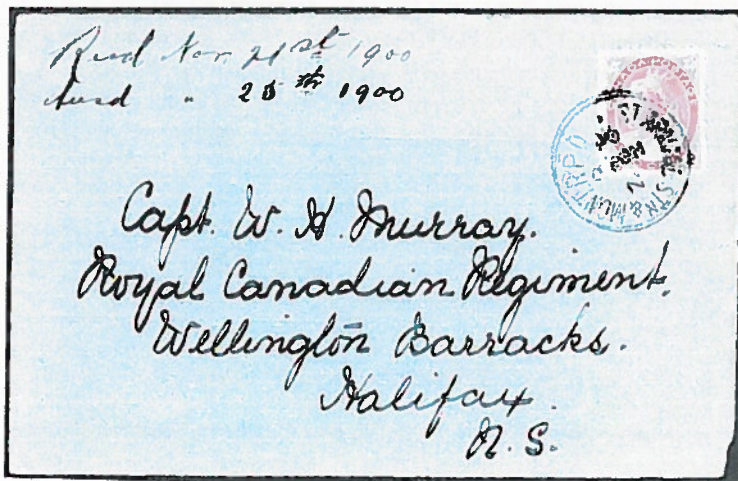 Recd Nov. 21st 1900
Ansd " 25th 1900
Capt. W. H. Murray.
Royal Canadian Regiment.
Wellington Barracks.
Halifax.
N. S.